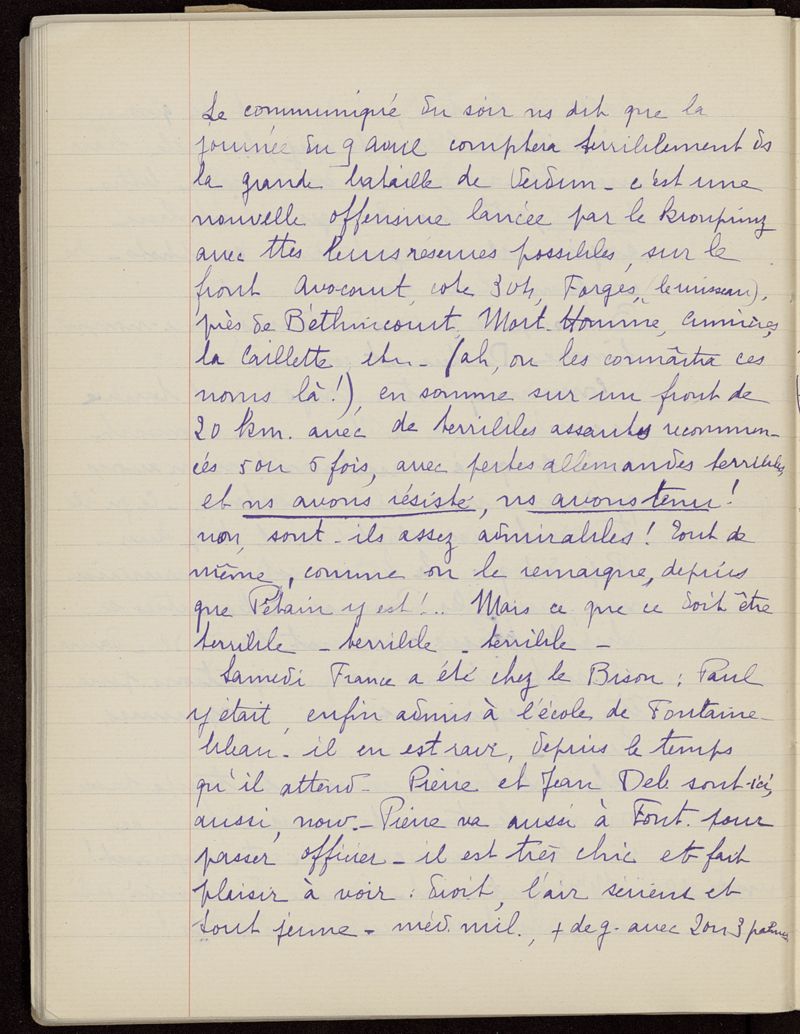 Le communiqué du soir ns dit que la
journée du 9 avril comptera terriblement ds
la grande bataille de Verdun - c'est une
nouvelle offensive lancée par le kronprinz
avec ttes leurs réserves possibles, sur le
front Avocourt, cote 304, Forges, (le ruisseau),
près de Béthincourt, Mort-Homme, Cumières,
la Caillette, etc. - (ah, on les connaîtra ces
noms là!), en somme sur un front de
20 km. avec de terribles assauts recommen-
cés 5 ou 6 fois, avec pertes allemandes terribles,
et ns avons résisté, ns avons tenu!
non, sont-ils assez admirables! Tout de
même, comme on le remarque, depuis
que Pétain y est!.. Mais ce que ce doit être
terrible - terrible - terrible -
Samedi France a été chez le Bison : Paul
y était, enfin admis à l'école de Fontaine-
bleau - il en est ravi, depuis le temps
qu'il attend - Pierre et Jean Deb. sont ici,
aussi, now. - Pierre va aussi à Font. pour
passer officier - il est très chic et fait
plaisir à voir : droit, l'air sérieux et
tout jeune - méd. mil., + de g. avec 2 ou 3 palmes